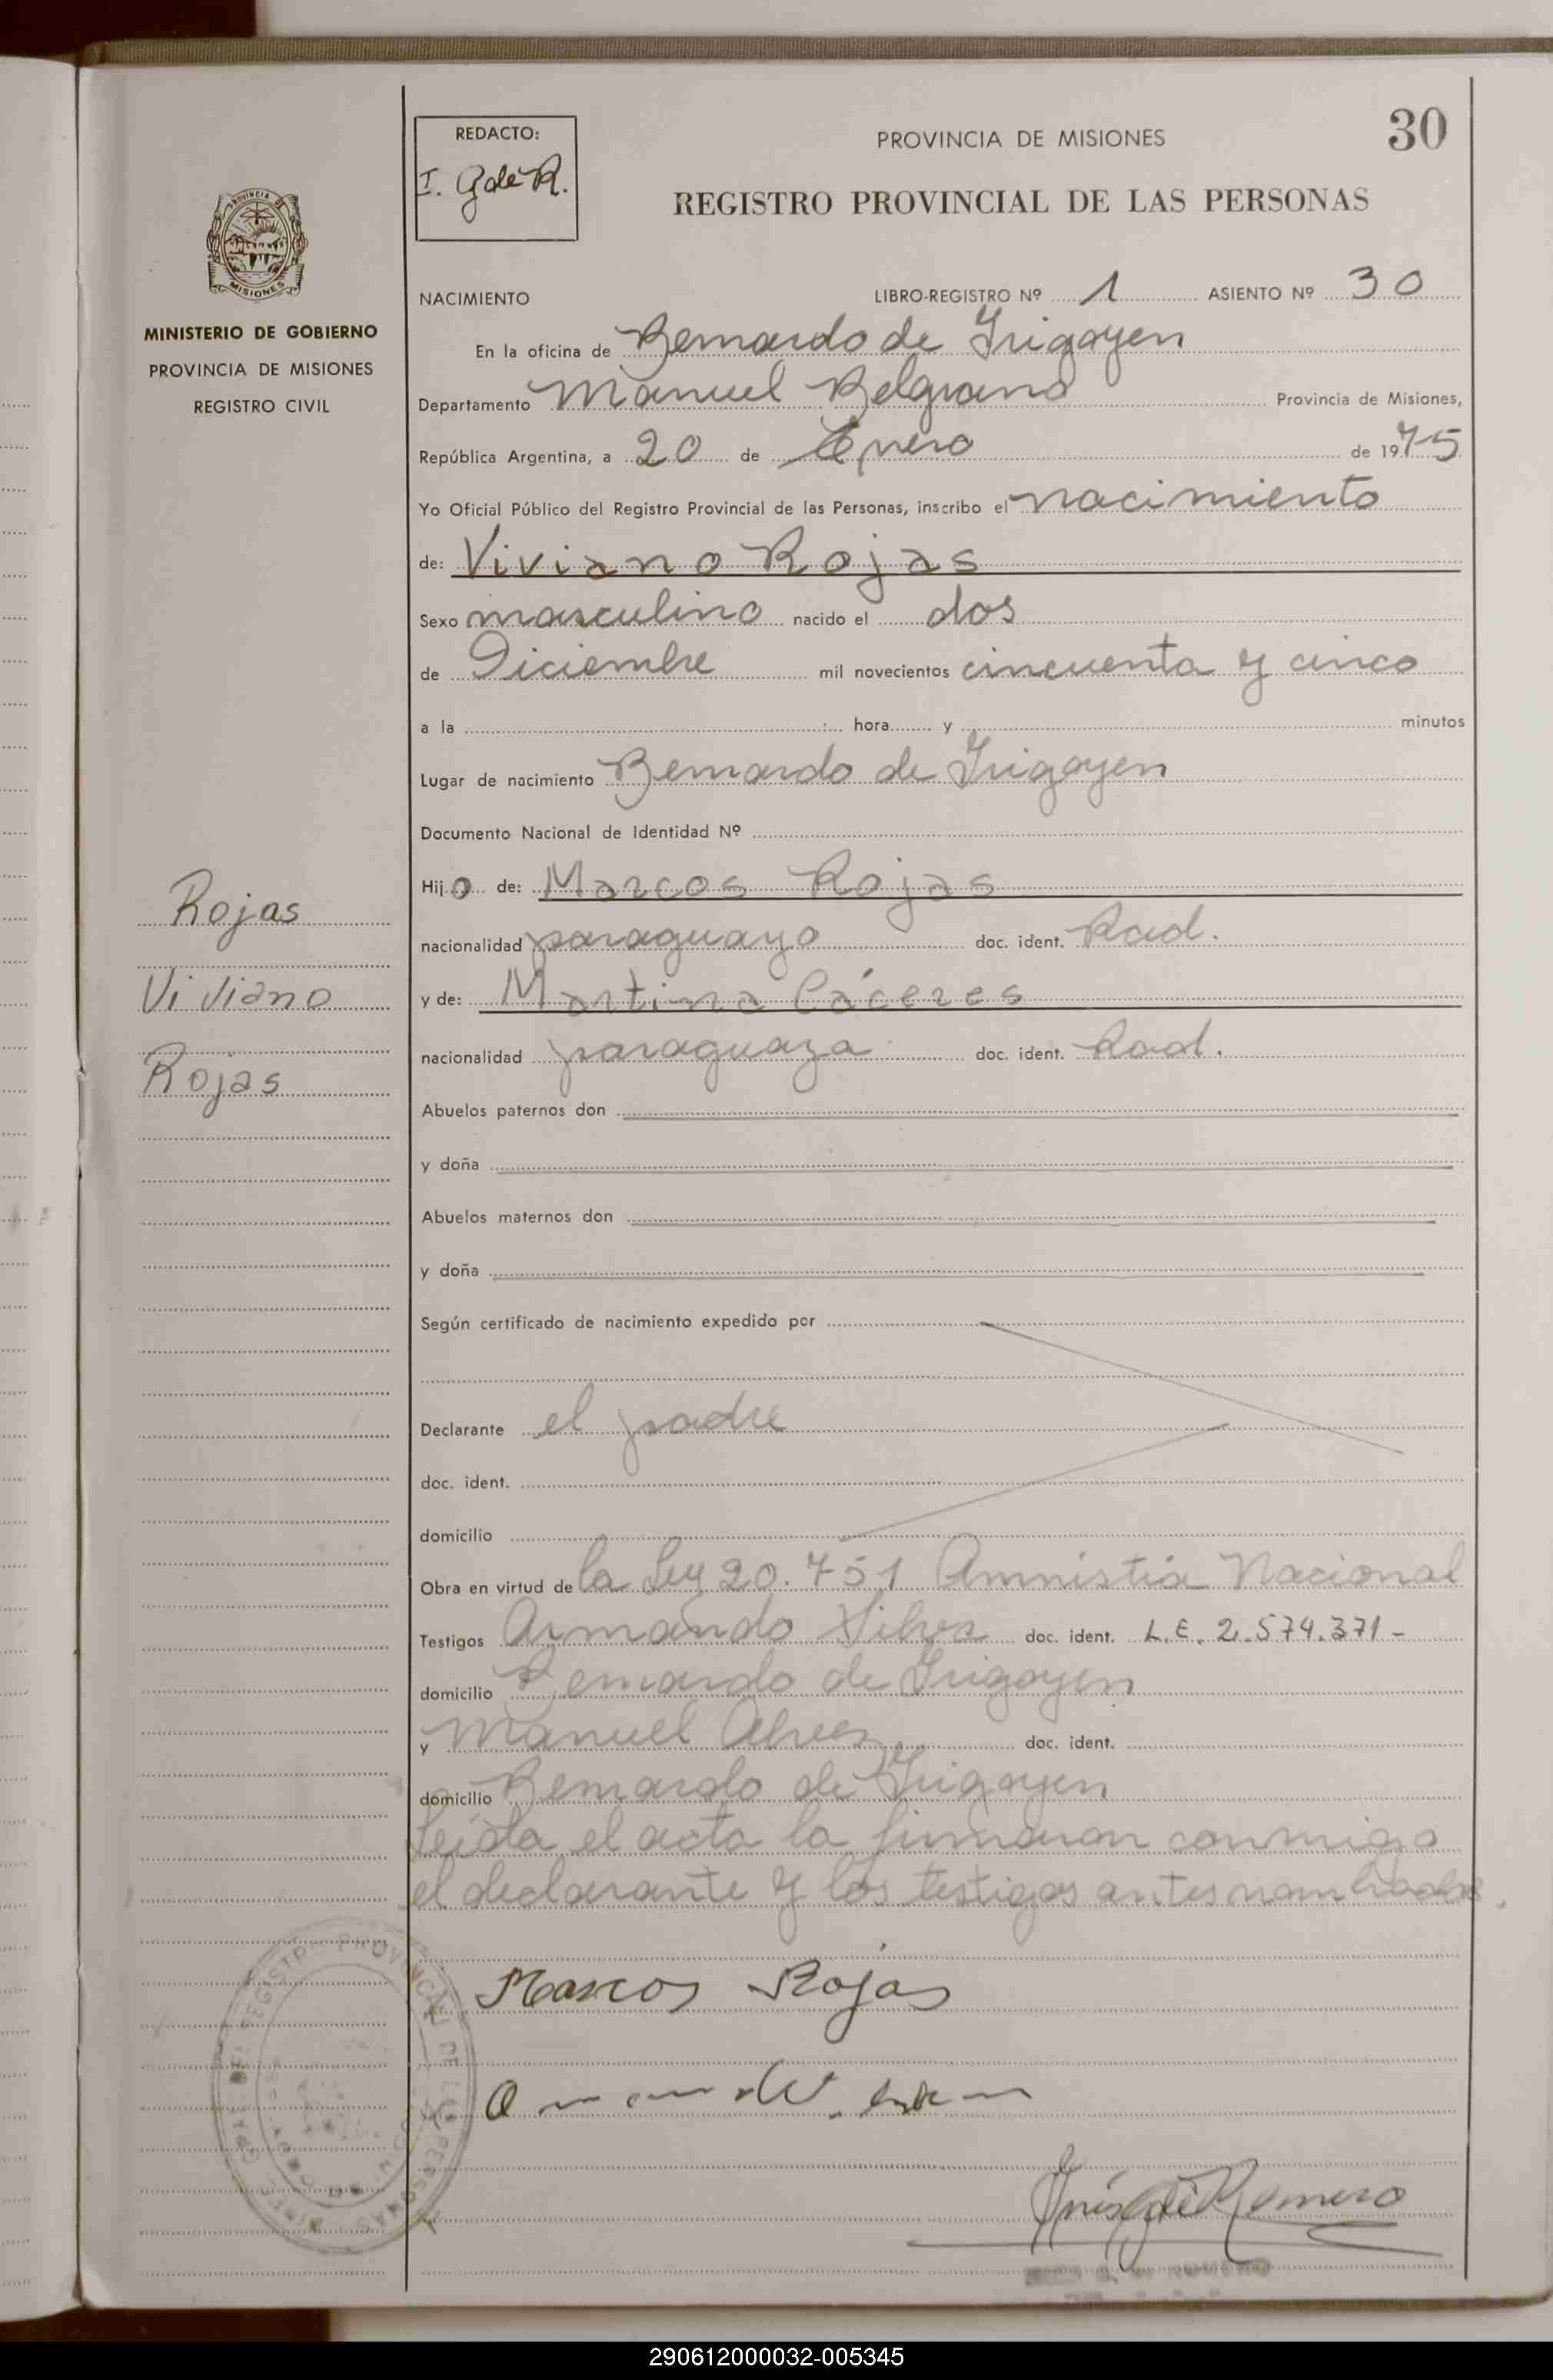 30
REDACTO:
I. G de R.
PROVINCIA DE MISIONES
REGISTRO PROVINCIAL DE LAS PERSONAS
PROVINCIA
MISIONES
MINISTERIO DE GOBIERNO
PROVINCIA DE MISIONES
REGISTRO CIVIL
NACIMIENTO LIBRO-REGISTRO Nº 1 ASIENTO Nº 30
En la oficina de Bernardo de Irigoyen
Departamento Manuel Belgrano Provincia de Misiones,
República Argentina, a 20 de Enero de 1975
Yo Oficial Público del Registro Provincial de las Personas, inscribo el nacimiento
de: Viviano Rojas
Sexo masculino nacido el dos
de Diciembre mil novecientos cincuenta y cinco
a la hora y minutos
Lugar de nacimiento Bernardo de Irigoyen
Documento Nacional de Identidad Nº
Hijo de: Marcos Rojas
nacionalidad paraguayo doc. ident. Rad.
y de: Martina Cáceres
nacionalidad paraguaya doc. ident. Rad.
Rojas
Viviano
Rojas
Abuelos paternos don
y doña
Abuelos maternos don
y doña
Según certificado de nacimiento expedido por
Declarante el padre
doc. ident.
domicilio
Obra en virtud de la Ley 20.751 Amnistía Nacional
Testigos Armando Silva doc. ident. L.E. 2.574.371-
domicilio Bernardo de Irigoyen
y Manuel Alves doc. ident.
domicilio Bernardo de Irigoyen
Leída el acta la firmaron conmigo
el declarante y los testigos antes nombrados.
REGISTRO PROVINCIAL DE LAS PERSONAS
Marcos Rojas
Inés G de Romero
290612000032-005345